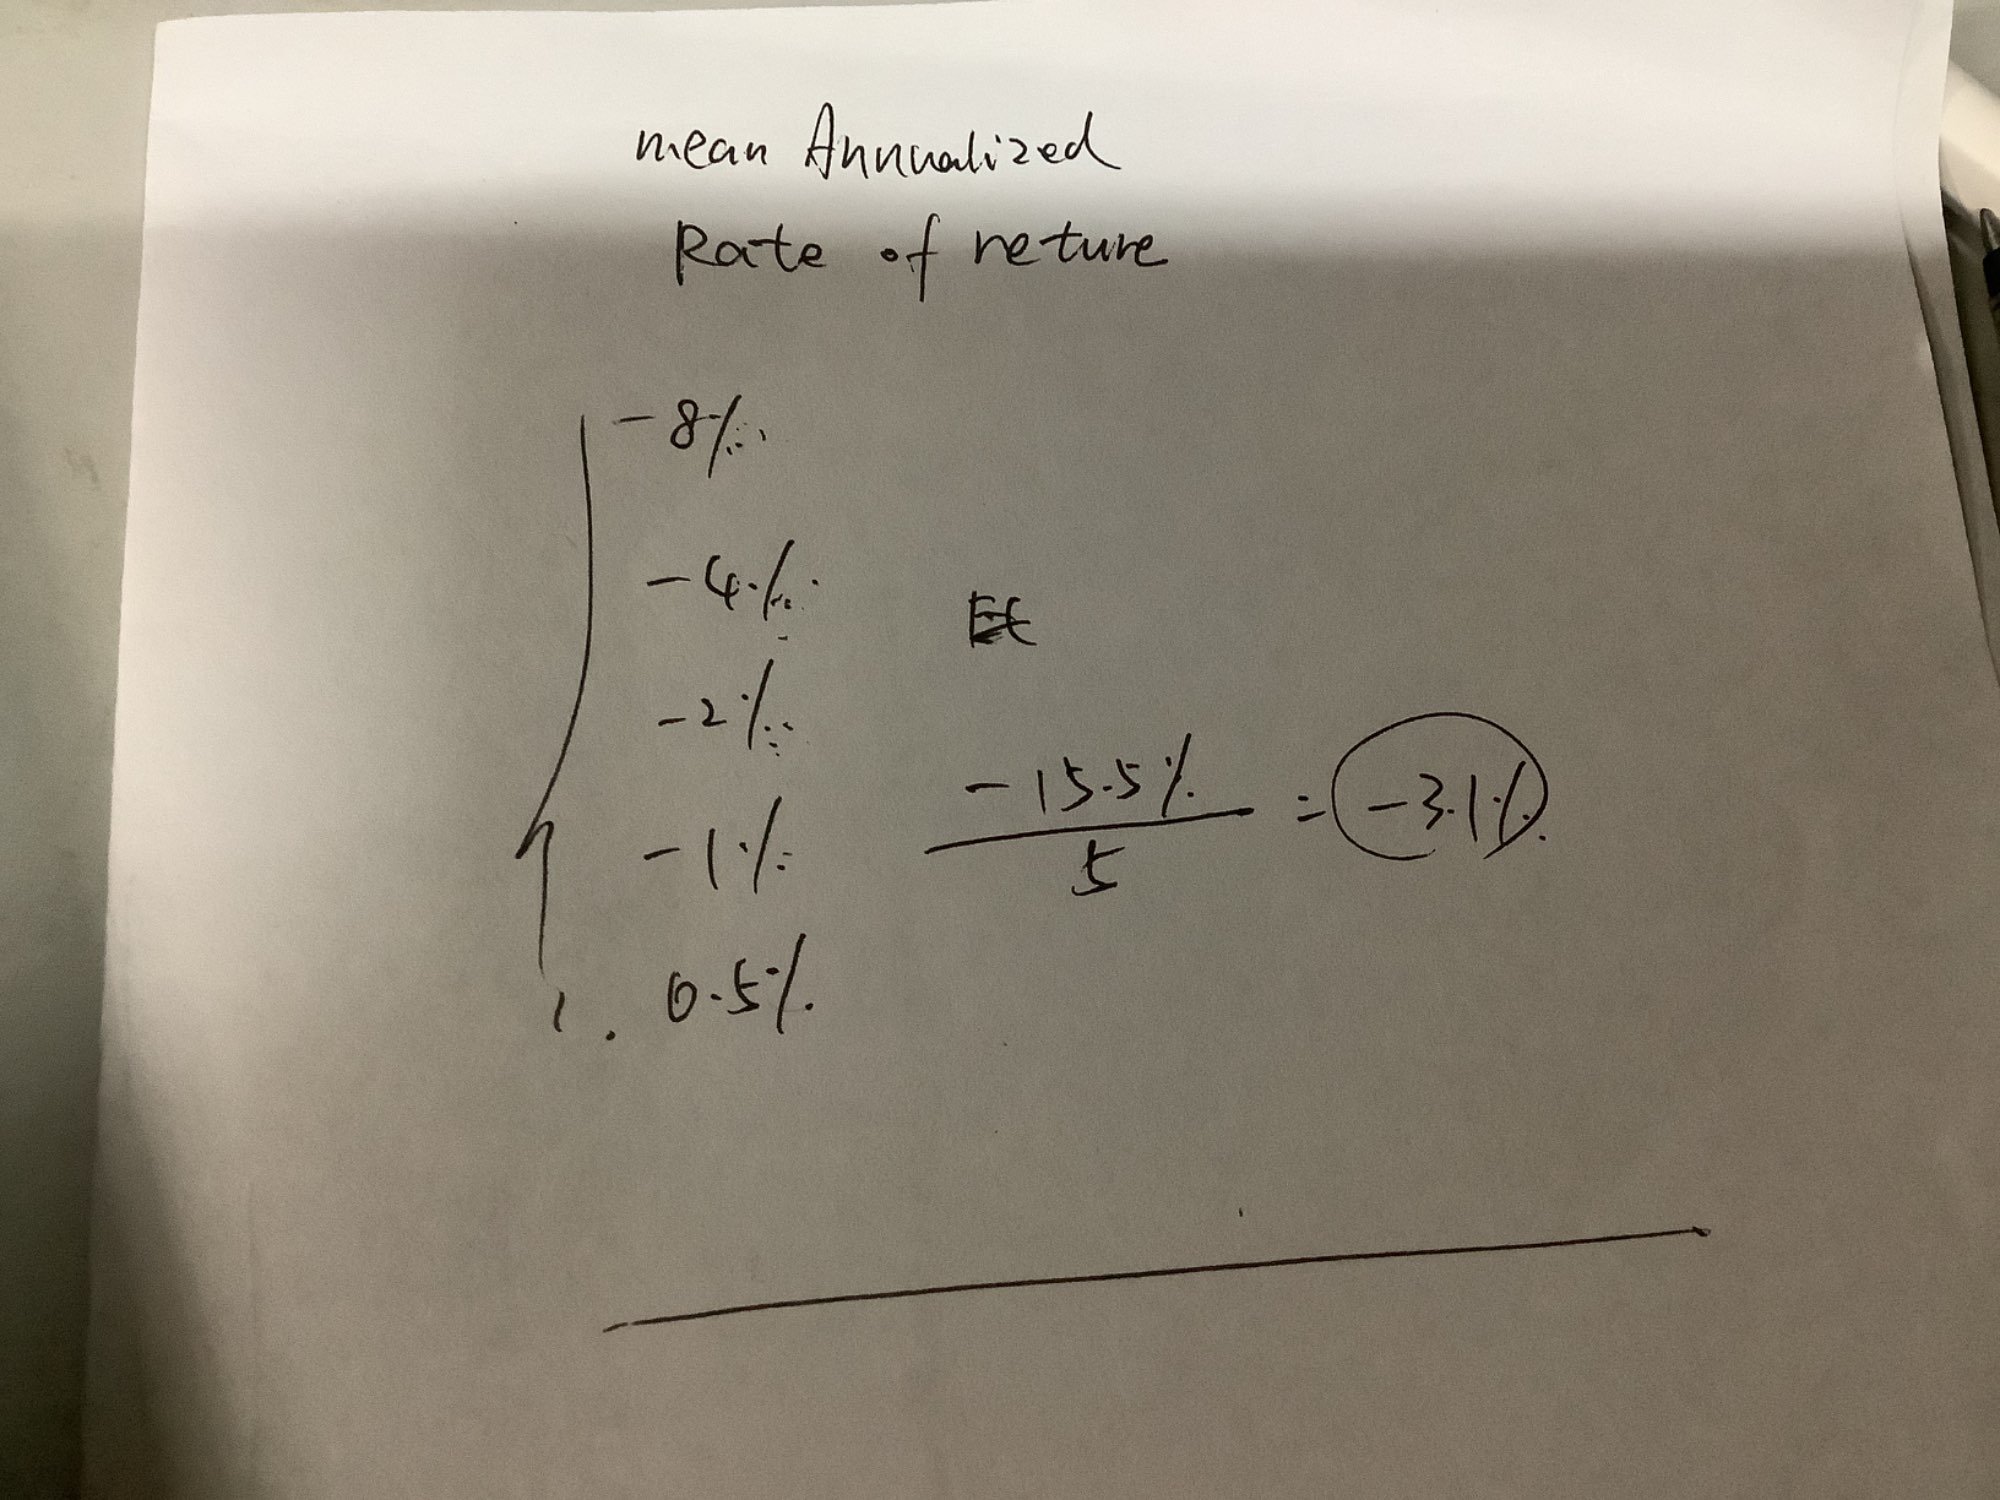 mean Annualized
Rate of reture
-8%
-4%
-2%
-15.5%
5
= -3.1%
-1%
0.5%